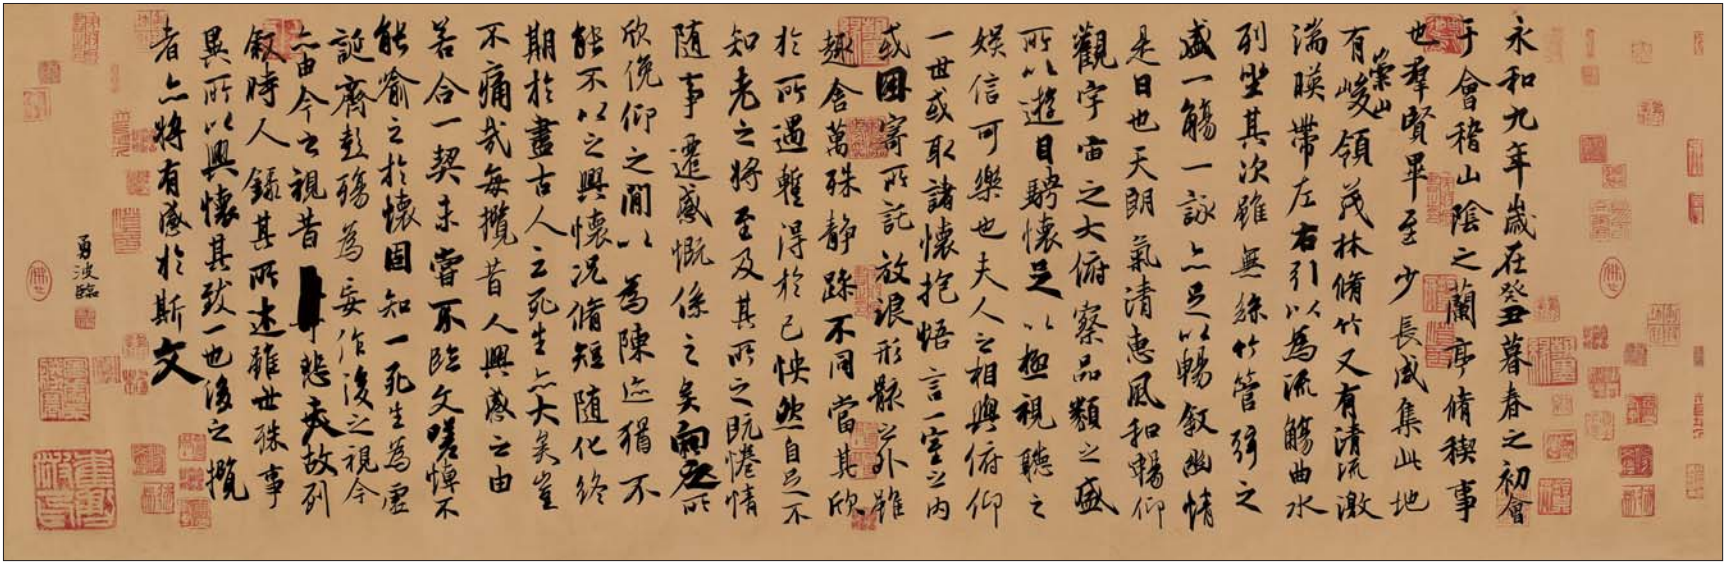 永和九年歲在癸丑暮春之初會
于會稽山陰之蘭亭脩稧事
也羣賢畢至少長咸集此地
有崇山峻領茂林脩竹又有清流激
湍暎帶左右引以為流觴曲水
列坐其次雖無絲竹管弦之
盛一觴一詠亦足以暢敘幽情
是日也天朗氣清惠風和暢仰
觀宇宙之大俯察品類之盛
所以遊目騁懷足以極視聽之
娛信可樂也夫人之相與俯仰
一世或取諸懷抱悟言一室之內
或因寄所託放浪形骸之外雖
趣舍萬殊靜躁不同當其欣
於所遇暫得於己怏然自足不
知老之將至及其所之既惓情
隨事遷感慨係之矣向之所
欣俛仰之閒以為陳迹猶不
能不以之興懷況脩短隨化終
期於盡古人云死生亦大矣豈
不痛哉每攬昔人興感之由
若合一契未嘗不臨文嗟悼不
能喻之於懷固知一死生為虛
誕齊彭殤為妄作後之視今
亦由今之視昔悲夫故列
敘時人錄其所述雖世殊事
異所以興懷其致一也後之攬
者亦將有感於斯文
勇波臨